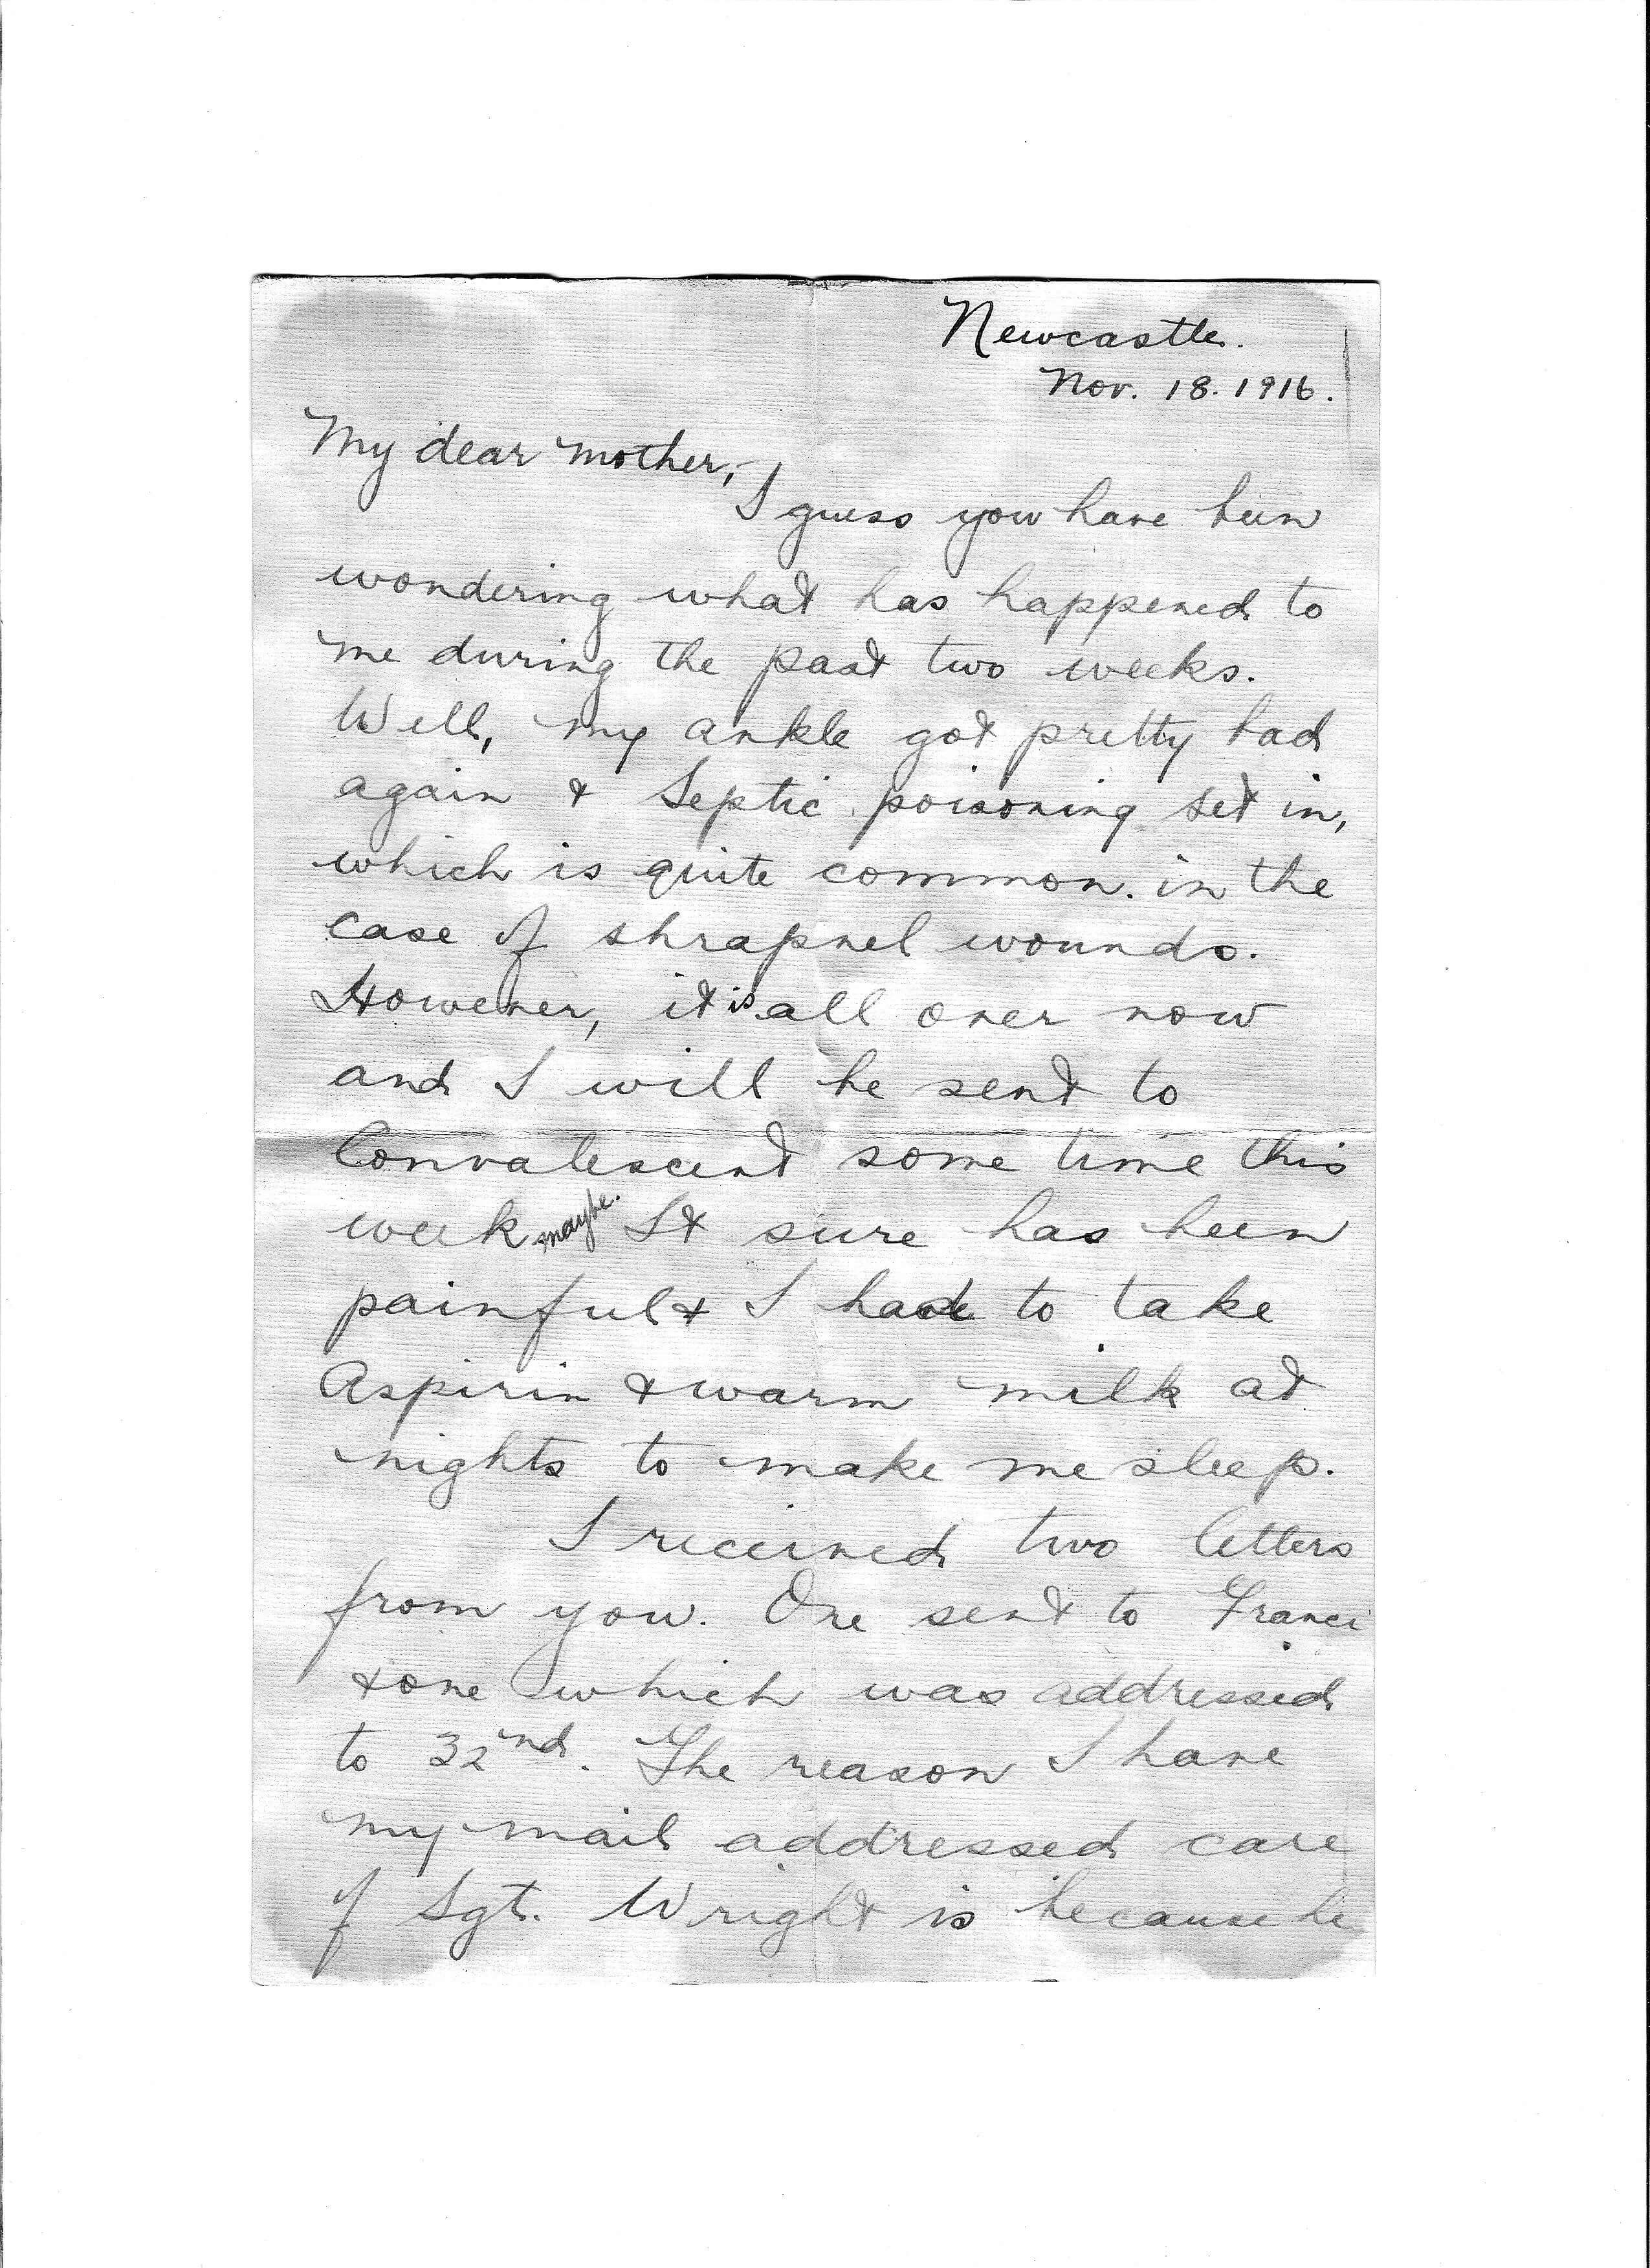 Newcastle.
Nov. 18. 1916.
My dear Mother,
I guess you have been
wondering what has happened to
me during the past two weeks.
Well, my ankle got pretty bad
again & Septic poisoning set in,
which is quite common. in the
case of shrapnel wounds.
However, it is all over now
and I will be sent to
Convalescent some time this
week maybe. It sure has been
painful & I had to take
Aspirin & warm milk at
nights to make me sleep.
I received two letters
from you. One sent to France
& one which was addressed
to 32nd. The reason I have
my mail addressed care
of Sgt. Wright is because he